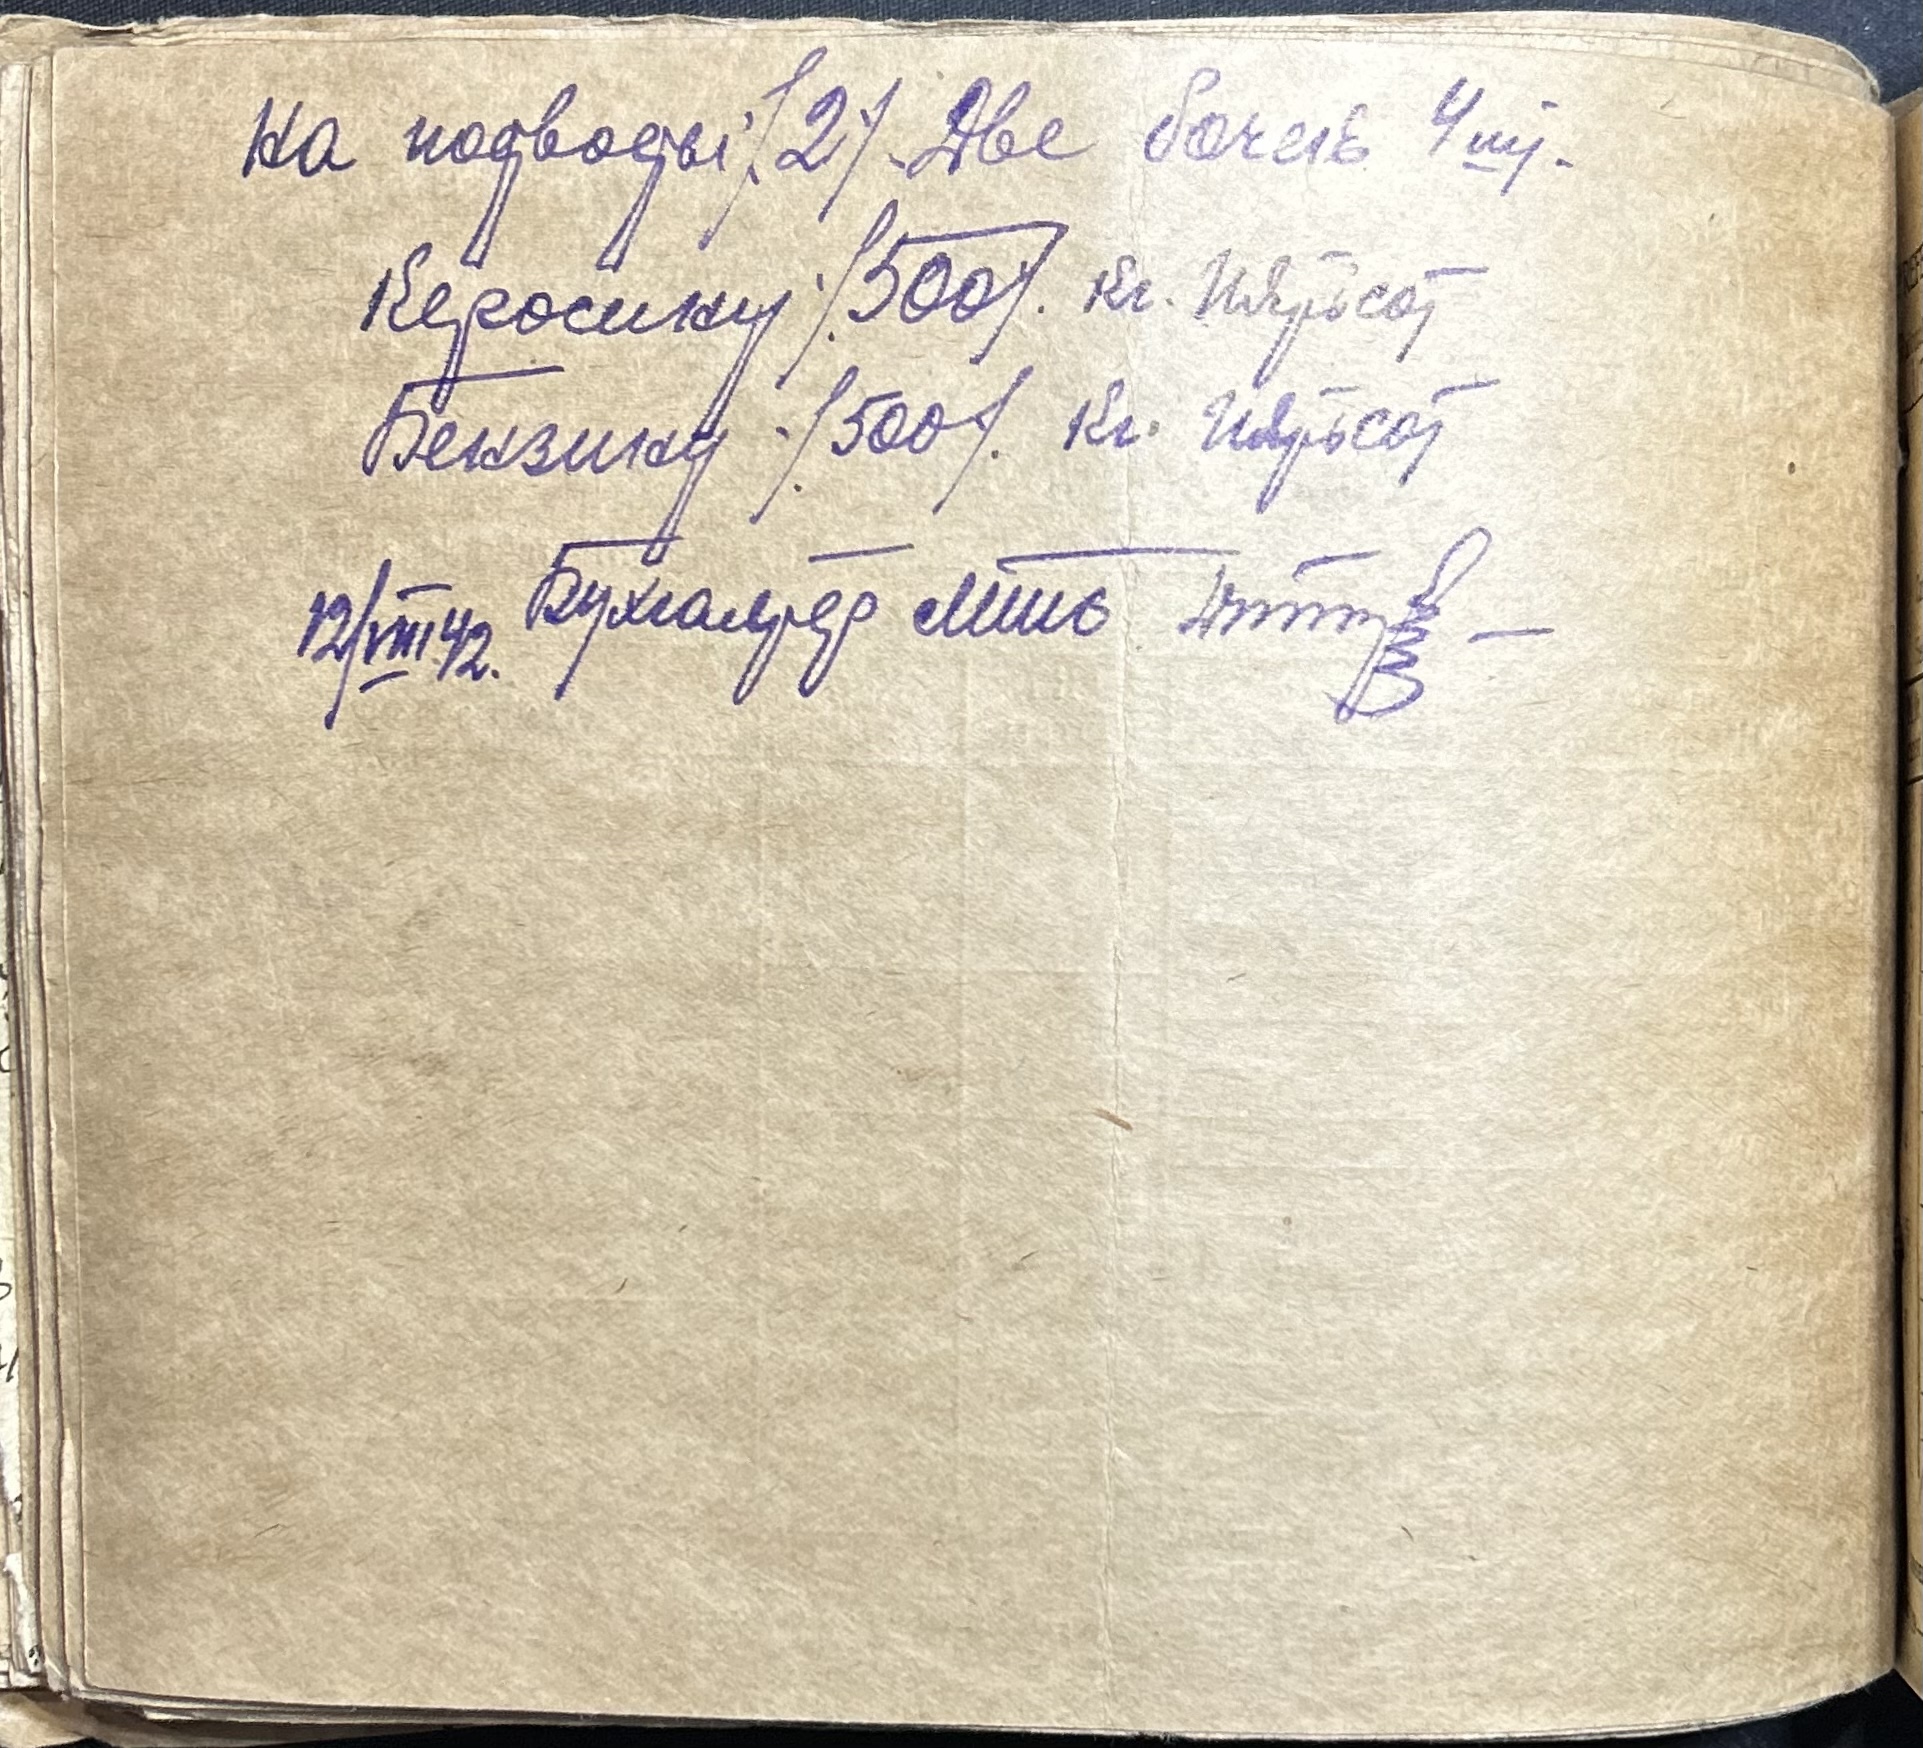 На подводы ./2/. Две бочек 4 шт.
Керосину ./500/. кг. Пятьсот
Бензину ./500/. кг. Пятьсот
12/VIII 42. Бухгалтер